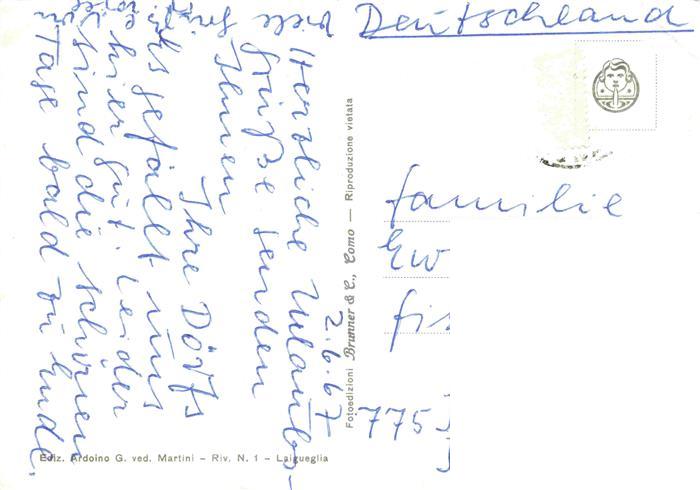 Deutschland
Familie
Ew
fis
775
2.6.67
Herzliche Urlaubs-
grüße senden
Ihnen
Ihre Dörfs
Es gefällt uns
hier gut. Leider
sind die schönen
Tage bald zu Ende.
viele
Fotoedizioni Brunner & C., Como — Riproduzione vietata
Ediz. Ardoino G. ved. Martini – Riv. N. 1 – Laigueglia